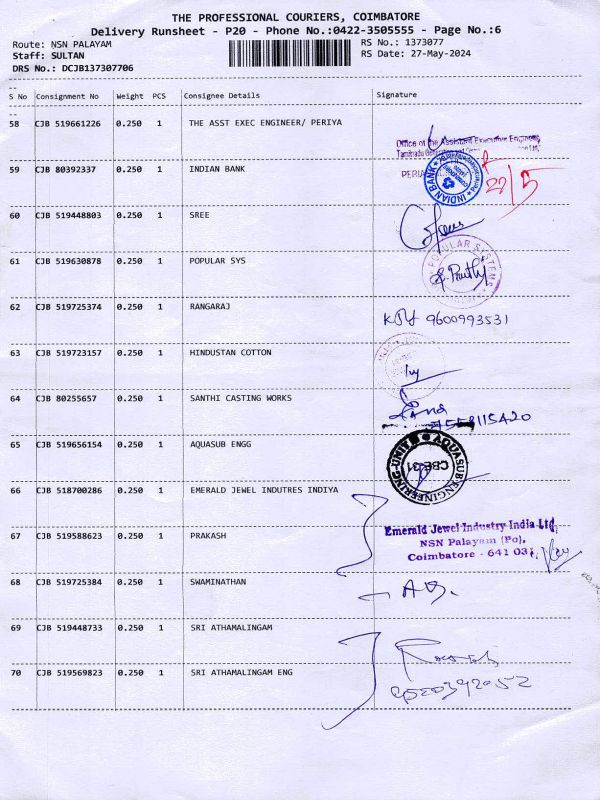 THE PROFESSIONAL COURIERS, COIMBATORE
Delivery Runsheet - P20 - Phone No.:0422-3505555 - Page No.:6
Route: NSN PALAYAM
Staff: SULTAN
DRS No.: DCJB137307706
RS No.: 1373077
RS Date: 27-May-2024
S No Consignment No Weight PCS Consignee Details Signature
58 CJB 519661226 0.250 1 THE ASST EXEC ENGINEER/ PERIYA
Office of the Assistant Executive Engineer
59 CJB 80392337 0.250 1 INDIAN BANK
INDIAN BANK
27/5
60 CJB 519448803 0.250 1 SREE
61 CJB 519630878 0.250 1 POPULAR SYS
POPULAR SYSTEMS
62 CJB 519725374 0.250 1 RANGARAJ
9600993531
63 CJB 519723157 0.250 1 HINDUSTAN COTTON
64 CJB 80255657 0.250 1 SANTHI CASTING WORKS
65 CJB 519656154 0.250 1 AQUASUB ENGG
AQUASUB ENGINEERING-UNIT
CBE-31
66 CJB 518700286 0.250 1 EMERALD JEWEL INDUTRES INDIYA
67 CJB 519588623 0.250 1 PRAKASH
Emerald Jewel Industry India Ltd,
NSN Palayam (Po),
Coimbatore - 641 031.
68 CJB 519725384 0.250 1 SWAMINATHAN
69 CJB 519448733 0.250 1 SRI ATHAMALINGAM
70 CJB 519569823 0.250 1 SRI ATHAMALINGAM ENG